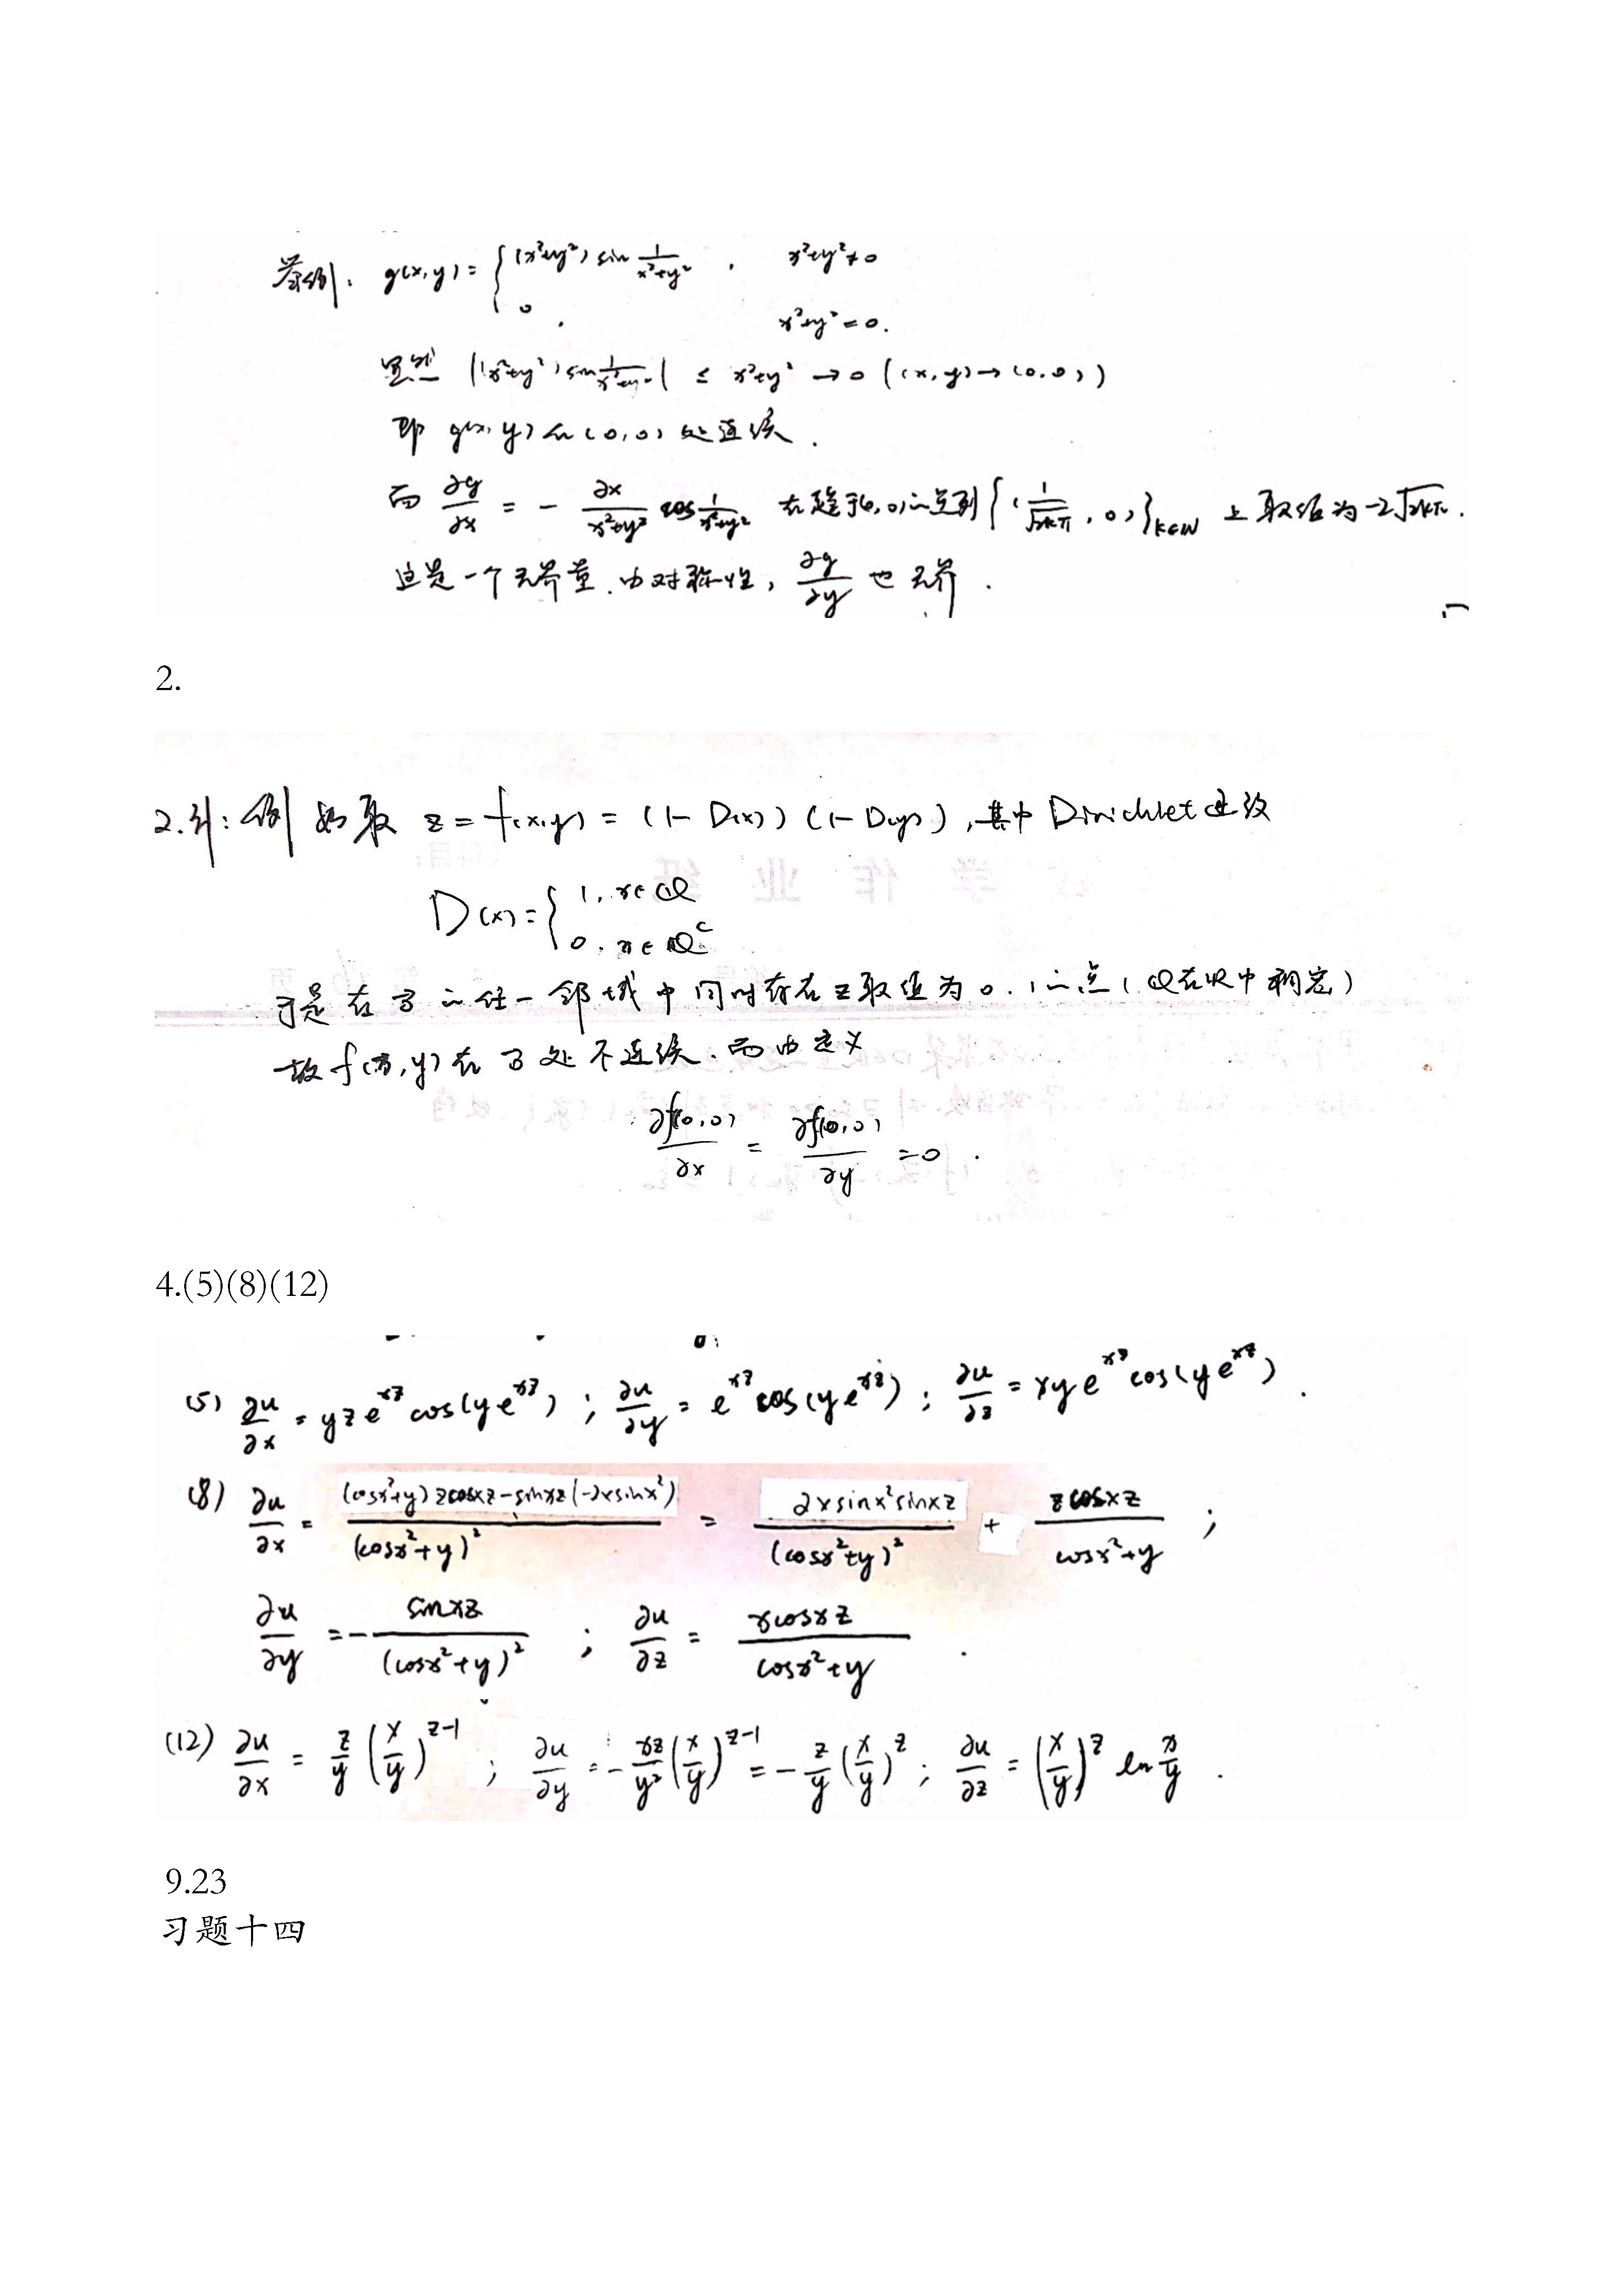 举例: g(x,y) = { (x²+y²) sin 1/(x²+y²), x²+y²≠0
0, x²+y²=0.
显然 |(x²+y²) sin 1/(x²+y²)| ≤ x²+y² → 0 ((x,y)→(0,0))
即 g(x,y) 在 (0,0) 处连续.
而 ∂g/∂x = - 2x/(x²+y²) cos 1/(x²+y²) 在趋于(0,0)的点列 {(1/√(2kπ), 0)}_{k∈N} 上取值为 -2√(2kπ).
这是一个无界量. 由对称性, ∂g/∂y 也无界.
2.
2.解: 例如取 z = f(x,y) = (1-D(x))(1-D(y)), 其中 Dirichlet 函数
D(x) = { 1, x∈Q
0, x∈Q^c
于是在 0 的任一邻域中同时存在 z 取值为 0, 1 的点 (Q在R中稠密)
故 f(x,y) 在 0 处不连续. 而由定义
∂f(0,0)/∂x = ∂f(0,0)/∂y = 0.
4.(5)(8)(12)
(5) ∂u/∂x = yze^{xz}cos(ye^{xz}); ∂u/∂y = e^{xz}cos(ye^{xz}); ∂u/∂z = xye^{xz}cos(ye^{xz}).
(8) ∂u/∂x = ((cosx²+y)zcosxz - sinxz(-2xsinx²))/(cosx²+y)² = 2xsinx²sinxz/(cosx²+y)² + zcosxz/(cosx²+y);
∂u/∂y = - sinxz/(cosx²+y)²; ∂u/∂z = xcosxz/(cosx²+y).
(12) ∂u/∂x = z/y (x/y)^{z-1}; ∂u/∂y = - xz/y² (x/y)^{z-1} = - z/y (x/y)^z; ∂u/∂z = (x/y)^z ln x/y.
9.23
习题十四